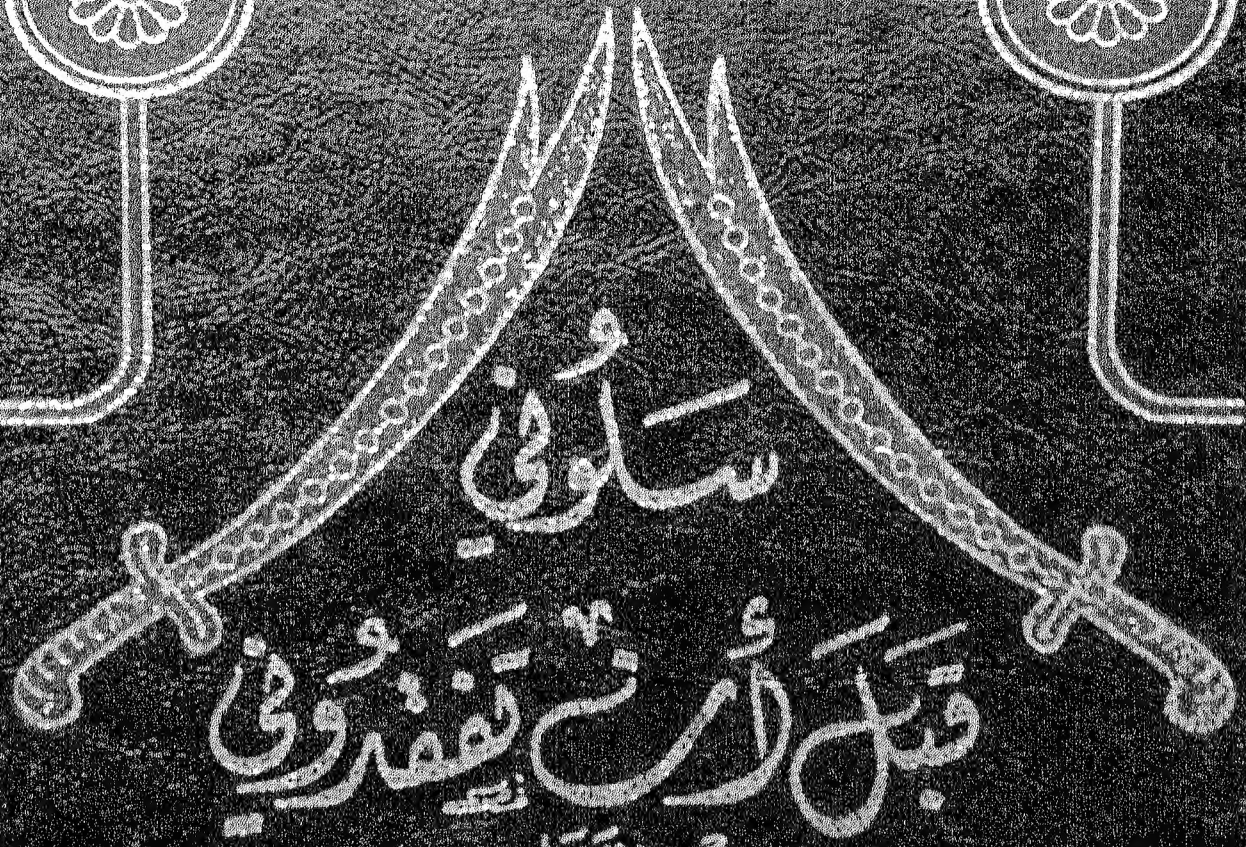 سَلُوني
قَبْلَ أَنْ تَفْقِدُوني